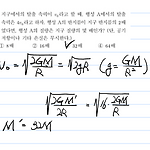 지구에서의 탈출 속력이 v₀라고 할 때, 행성 A에서의 탈출
속력은 4v₀라고 하자. 행성 A의 반지름이 지구 반지름의 2배
였다면, 행성 A의 질량은 지구 질량의 몇 배인가? (단, 공기
저항이나 기타 손실은 무시한다.)
① 4배 ② 16배 ③ 32배 ④ 64배
v₀ = √(2GM/R) = √(2gR) (g = GM/R²)
√(2GM'/2R) = √(16·2GM/R)
M' = 32M